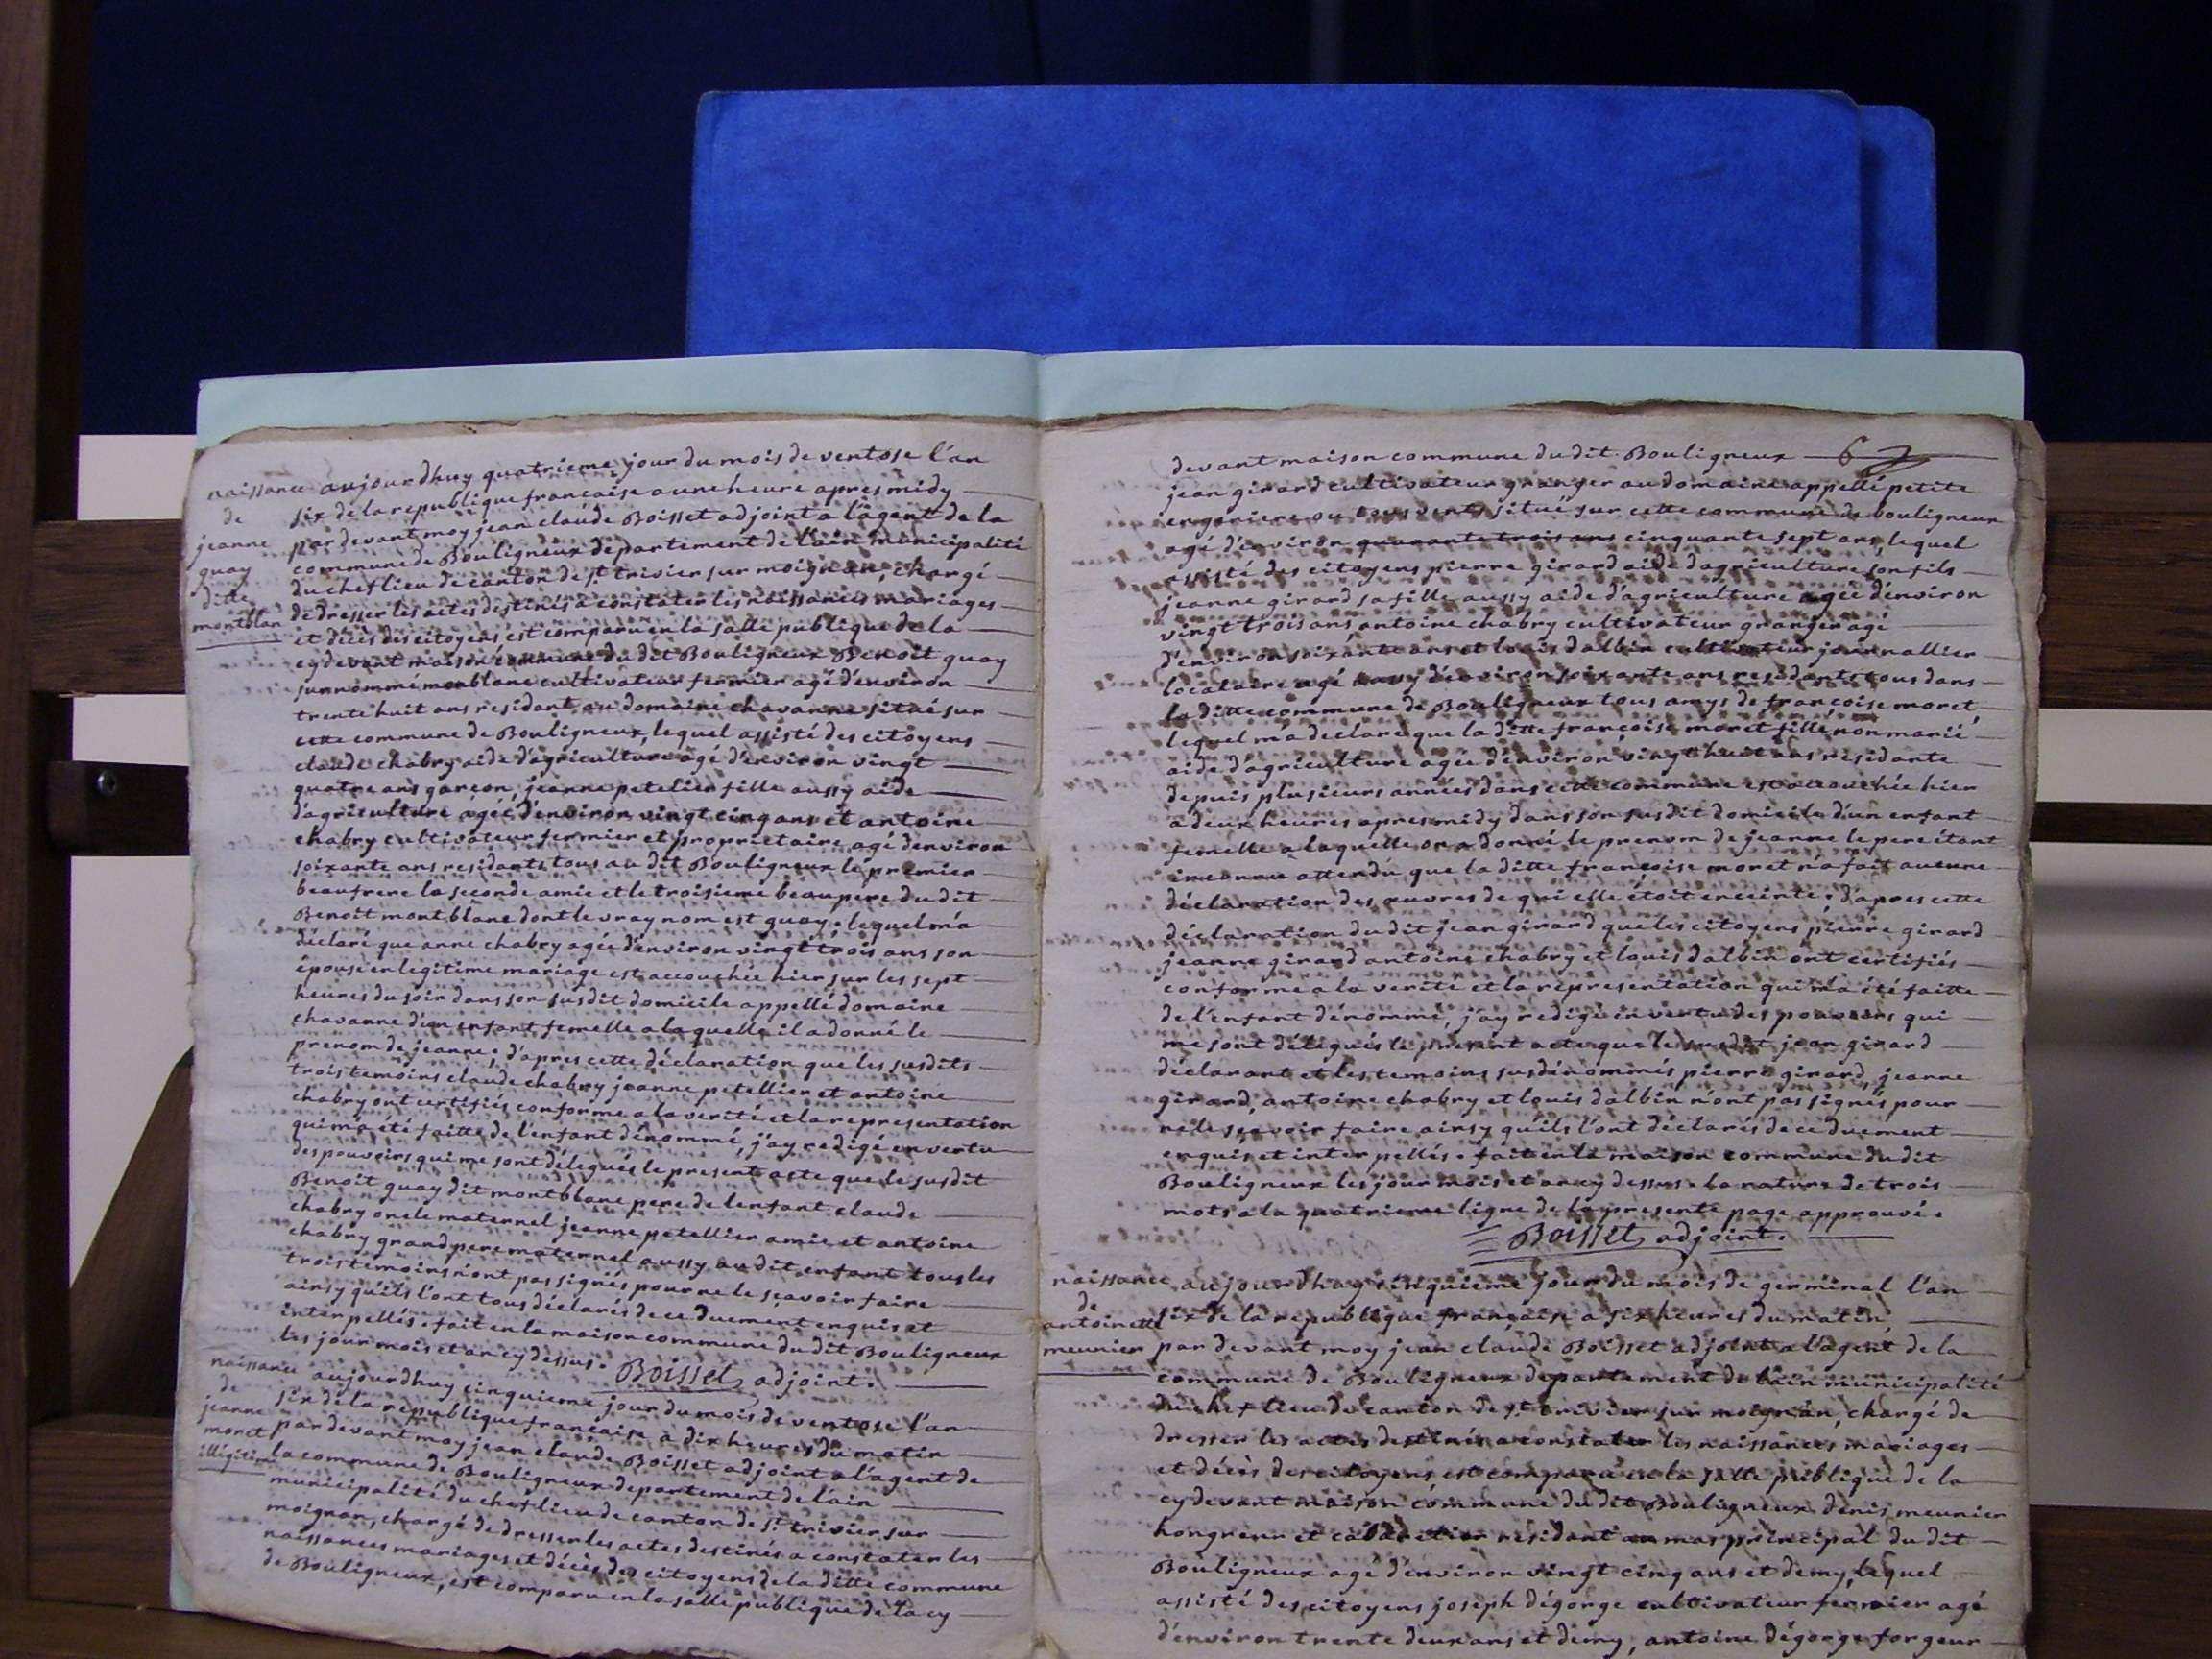 naissance
de
jeanne
quay
ditte
montblan
aujourdhuy quatrieme jour du mois de ventose l'an
six de la republique francaise a une heure apres midy
par devant moy jean claude Boisset adjoint a l'agent de la
commune de Bouligneux departement de l'ain municipalité
du chef lieu de canton de st trivier sur moignan, chargé
de dresser les actes destinés a constater les naissances mariages
et décès des citoyens est comparu en la salle publique de la
cy devant maison commune du dit Bouligneux Benoit quay
surnommé montblanc cultivateur fermier agé d'environ
trente huit ans residant au domaine chavanne situé sur
cette commune de Bouligneux, lequel assisté des citoyens
claude chabry aide d'agriculture agé d'environ vingt
quatre ans garçon, jeanne petelier fille aussy aide
d'agriculture agée d'environ vingt cinq ans et antoine
chabry cultivateur fermier et proprietaire agé d'environ
soixante ans residants tous au dit Bouligneux le premier
beaufrere la seconde amie et le troisieme beaupere du dit
Benoit montblanc dont le vray nom est quay. lequel m'a
déclaré que anne chabry agée d'environ vingt trois ans son
épouse en legitime mariage est accouchée hier sur les sept
heures du soir dans son susdit domicile appellé domaine
chavanne d'un enfant femelle a laquelle il a donné le
prenom de jeanne; d'apres cette déclaration que les susdits
trois temoins claude chabry jeanne petellier et antoine
chabry ont certifiés conforme a la verité et la representation
qui m'a été faitte de l'enfant dénommé, j'ay redigé en vertu
des pouvoirs qui me sont délegués le present acte que le susdit
Benoit quay dit montblanc pere de lenfant claude
chabry oncle maternel jeanne petellier amie et antoine
chabry grand pere maternel aussy au dit enfant tous les
trois temoins n'ont pas signés pour ne le sçavoir faire
ainsy qu'ils l'ont tous déclarés de ce duement enquis et
interpellés. fait en la maison commune du dit Bouligneux
les jour mois et an cy dessus. Boisset adjoint.
naissance
de
jeanne
moret
illégitime
aujourdhuy cinquieme jour du mois de ventose l'an
six de la republique francaise a dix heures du matin
par devant moy jean claude Boisset adjoint a l'agent de
la commune de Bouligneux departement de l'ain
municipalité du chef lieu de canton de st trivier sur
moignan, chargé de dresser les actes destinés a constater les
naissances mariages et décès des citoyens de la ditte commune
de Bouligneux, est comparu en la salle publique de la cy
devant maison commune du dit Bouligneux 6
jean girard cultivateur granger au domaine appellé petite
ou situé sur cette commune de bouligneux
agé d'environ quarante trois ans cinquante sept ans, lequel
assisté des citoyens pierre girard aide d'agriculture son fils
jeanne girard sa fille aussy aide d'agriculture agée d'environ
vingt trois ans antoine chabry cultivateur granger agé
d'environ soixante ans et louis dalbin cultivateur journallier
locataire agé aussy d'environ soixante ans residants tous dans
la ditte commune de Bouligneux tous amys de francoise moret,
lequel m'a déclaré que la ditte francoise moret fille non marié
aide d'agriculture agée d'environ vingt huit ans residante
depuis plusieurs années dans cette commune est accouchée hier
a deux heures apres midy dans son susdit domicile d'un enfant
femelle a laquelle on a donné le prenom de jeanne le pere étant
inconnu attendu que la ditte francoise moret n'a fait aucune
déclaration des œuvres de qui elle étoit enceinte; d'apres cette
déclaration du dit jean girard que les citoyens pierre girard
jeanne girard antoine chabry et louis dalbin ont certifiés
conforme a la verité et la representation qui m'a été faitte
de l'enfant dénommé, j'ay redigé en vertu des pouvoirs qui
me sont délegués le present acte que le susdit jean girard
déclarant et les temoins susdénommés pierre girard, jeanne
girard, antoine chabry et louis dalbin n'ont pas signés pour
ne le sçavoir faire ainsy qu'ils l'ont déclarés de ce duement
enquis et interpellés. fait en la maison commune du dit
Bouligneux les jour mois et an cy dessus. la rature de trois
mots a la quatrieme ligne de la presente page approuvé.
Boisset adjoint.
naissance
de
antoinette
meunier
aujourdhuy cinquieme jour du mois de germinal l'an
six de la republique francaise a six heures du matin
par devant moy jean claude Boisset adjoint a l'agent de la
commune de Bouligneux departement de l'ain municipalité
du chef lieu de canton de st trivier sur moignan, chargé de
dresser les actes destinés a constater les naissances mariages
et décès des citoyens, est comparu en la salle publique de la
cy devant maison commune du dit Bouligneux denis meunier
hongreur et cabaretier résidant au mas principal du dit
Bouligneux agé d'environ vingt cinq ans et demy, lequel
assisté des citoyens joseph dégorge cultivateur fermier agé
d'environ trente deux ans et demy, antoine dégorge forgeur